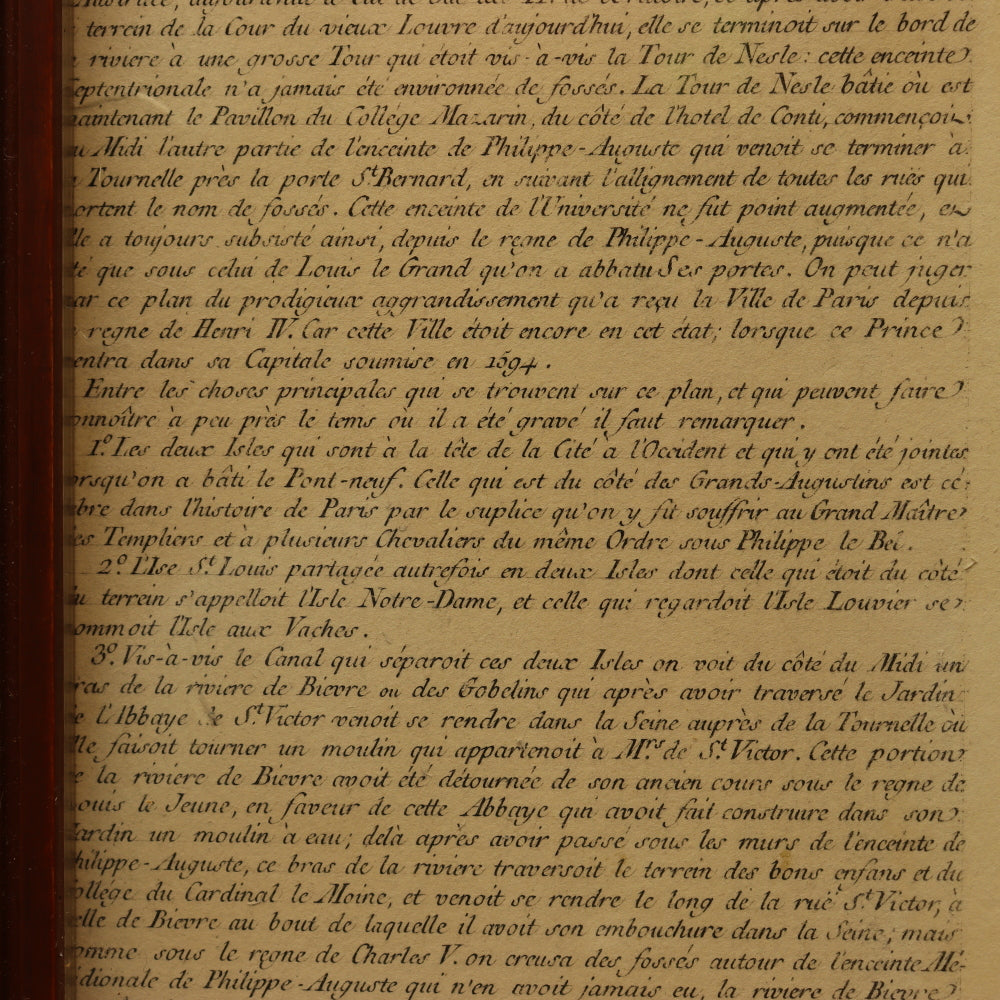 terrein de la Cour du vieux Louvre d'aujourd'hui, elle se terminoit sur le bord de
riviere à une grosse Tour qui étoit vis-à-vis la Tour de Nesle: cette enceinte
eptentrionale n'a jamais été environnée de fossés. La Tour de Nesle bâtie où est
aintenant le Pavillon du Collége Mazarin, du côté de l'hotel de Conti, commençoit
u Midi l'autre partie de l'enceinte de Philippe-Auguste qui venoit se terminer à
Tournelle près la porte St. Bernard, en suivant l'allignement de toutes les rues qui
ortent le nom de fossés. Cette enceinte de l'Université ne fut point augmentée, et
lle a toujours subsisté ainsi, depuis le regne de Philippe-Auguste, puisque ce n'a
té que sous celui de Louis le Grand qu'on a abbatu Ses portes. On peut juger
ar ce plan du prodigieux aggrandissement qu'a reçu la Ville de Paris depuis
regne de Henri IV. Car cette Ville étoit encore en cet état; lorsque ce Prince
entra dans sa Capitale soumise en 1594.
Entre les choses principales qui se trouvent sur ce plan, et qui peuvent faire
onnoître à peu près le tems où il a été gravé il faut remarquer.
1º. Les deux Isles qui sont à la tête de la Cité à l'Occident et qui y ont été jointes
orsqu'on a bâti le Pont-neuf. Celle qui est du côté des Grands-Augustins est cé-
bre dans l'histoire de Paris par le suplice qu'on y fit souffrir au Grand Maître
es Templiers et à plusieurs Chevaliers du même Ordre sous Philippe le Bel.
2º. L'Ise St. Louis partagée autrefois en deux Isles dont celle qui étoit du côté
u terrein s'appelloit l'Isle Notre-Dame, et celle qui regardoit l'Isle Louvier se
ommoit l'Isle aux Vaches.
3º. Vis-à-vis le Canal qui séparoit ces deux Isles on voit du côté du Midi un
ras de la riviere de Bievre ou des Gobelins qui après avoir traversé le Jardin
e L'Abbaye de St. Victor venoit se rendre dans la Seine auprès de la Tournelle où
lle faisoit tourner un moulin qui appartenoit à Mrs. de St. Victor. Cette portion
e la riviere de Bievre avoit été détournée de son ancien cours sous le regne de
ouis le Jeune, en faveur de cette Abbaye qui avoit fait construire dans son
Jardin un moulin à eau; delà après avoir passé sous les murs de l'enceinte de
hilippe-Auguste, ce bras de la riviere traversoit le terrein des bons enfans et du
ollége du Cardinal le Moine, et venoit se rendre le long de la rue St. Victor, à
elle de Bievre au bout de laquelle il avoit son embouchure dans la Seine; mais
omme sous le regne de Charles V. on creusa des fossés autour de l'enceinte Mé-
idionale de Philippe-Auguste qui n'en avoit jamais eu, la riviere de Bievre